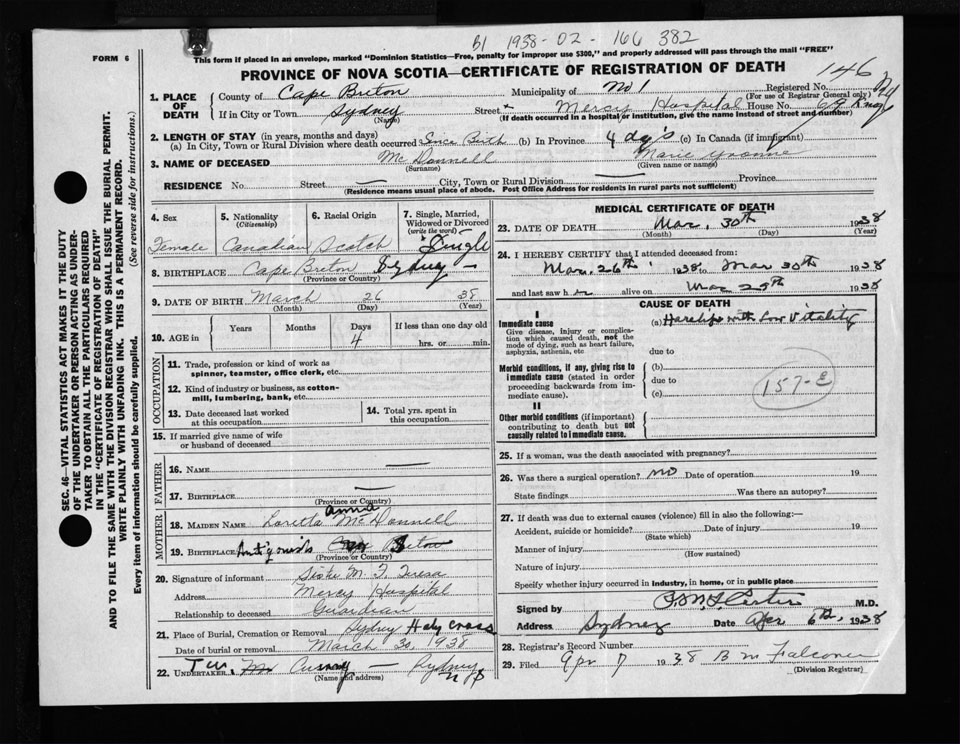 B1 1938-02-166 382
FORM 6
This form if placed in an envelope, marked "Dominion Statistics—Free, penalty for improper use $300," and properly addressed will pass through the mail "FREE"
PROVINCE OF NOVA SCOTIA—CERTIFICATE OF REGISTRATION OF DEATH
146
1. PLACE OF DEATH
County of Cape Breton Municipality of No 1 Registered No.
(For use of Registrar General only)
If in City or Town Sydney Street Mercy Hospital House No. 69
(Name) (If death occurred in a hospital or institution, give the name instead of street and number)
2. LENGTH OF STAY (in years, months and days)
(a) In City, Town or Rural Division where death occurred Since Birth (b) In Province 4 dys (c) In Canada (if immigrant)
3. NAME OF DECEASED Mc Donnell Marie Yvonne
(Surname) (Given name or names)
RESIDENCE No. Street — City, Town or Rural Division — Province
(Residence means usual place of abode. Post Office Address for residents in rural parts not sufficient)
4. Sex 5. Nationality (Citizenship) 6. Racial Origin 7. Single, Married, Widowed or Divorced (write the word)
Female Canadian Scotch Single
8. BIRTHPLACE Cape Breton Sydney —
(Province or Country)
9. DATE OF BIRTH March 26 38
(Month) (Day) (Year)
10. AGE in Years Months Days If less than one day old
4 hrs. or min.
OCCUPATION
11. Trade, profession or kind of work as spinner, teamster, office clerk, etc.
12. Kind of industry or business, as cotton-mill, lumbering, bank, etc.
13. Date deceased last worked at this occupation
14. Total yrs. spent in this occupation
15. If married give name of wife or husband of deceased
FATHER
16. NAME —
17. BIRTHPLACE —
(Province or Country)
MOTHER
18. MAIDEN NAME Loretta Anna McDonnell
19. BIRTHPLACE Antigonish Cape Breton
(Province or Country)
20. Signature of informant Sister M. F. Teresa
Address Mercy Hospital
Relationship to deceased Guardian
21. Place of Burial, Cremation or Removal Sydney Holy Cross
Date of burial or removal March 30 1938
22. UNDERTAKER T. W. Curry — Sydney NS
(Name and address)
MEDICAL CERTIFICATE OF DEATH
23. DATE OF DEATH Mar, 30th 1938
(Month) (Day) (Year)
24. I HEREBY CERTIFY that I attended deceased from:
Mar. 26th 1938 to Mar 30th 1938
and last saw her alive on Mar 29th 1938
CAUSE OF DEATH
I
Immediate cause
Give disease, injury or complication which caused death, not the mode of dying, such as heart failure, asphyxia, asthenia, etc
(a) Harelip with Low Vitality
due to
Morbid conditions, if any, giving rise to immediate cause (stated in order proceeding backwards from immediate cause).
(b)
due to
(c)
157-E
II
Other morbid conditions (if important) contributing to death but not causally related to immediate cause.
25. If a woman, was the death associated with pregnancy?
26. Was there a surgical operation? no Date of operation 19
State findings Was there an autopsy?
27. If death was due to external causes (violence) fill in also the following:—
Accident, suicide or homicide? Date of injury 19
(State which)
Manner of injury
(How sustained)
Nature of injury
Specify whether injury occurred in industry, in home, or in public place
Signed by M.D.
Address Sydney Date Apr 6th, 1938
28. Registrar's Record Number
29. Filed Apr 7 1938 B M Falconer
(Division Registrar)
SEC. 46—VITAL STATISTICS ACT MAKES IT THE DUTY
OF THE UNDERTAKER OR PERSON ACTING AS UNDER-
TAKER TO OBTAIN ALL THE PARTICULARS REQUIRED
IN THE "CERTIFICATE OF REGISTRATION OF DEATH"
AND TO FILE THE SAME WITH THE DIVISION REGISTRAR WHO SHALL ISSUE THE BURIAL PERMIT.
WRITE PLAINLY WITH UNFADING INK. THIS IS A PERMANENT RECORD.
Every item of information should be carefully supplied. (See reverse side for instructions.)